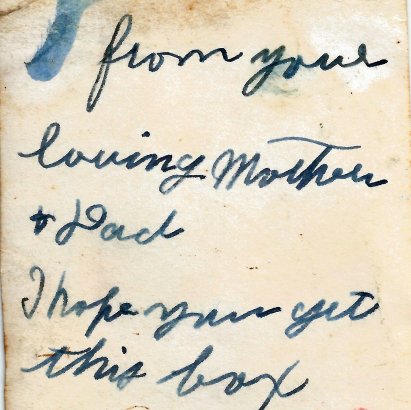 from your
loving Mother
& Dad
I hope you get
this box